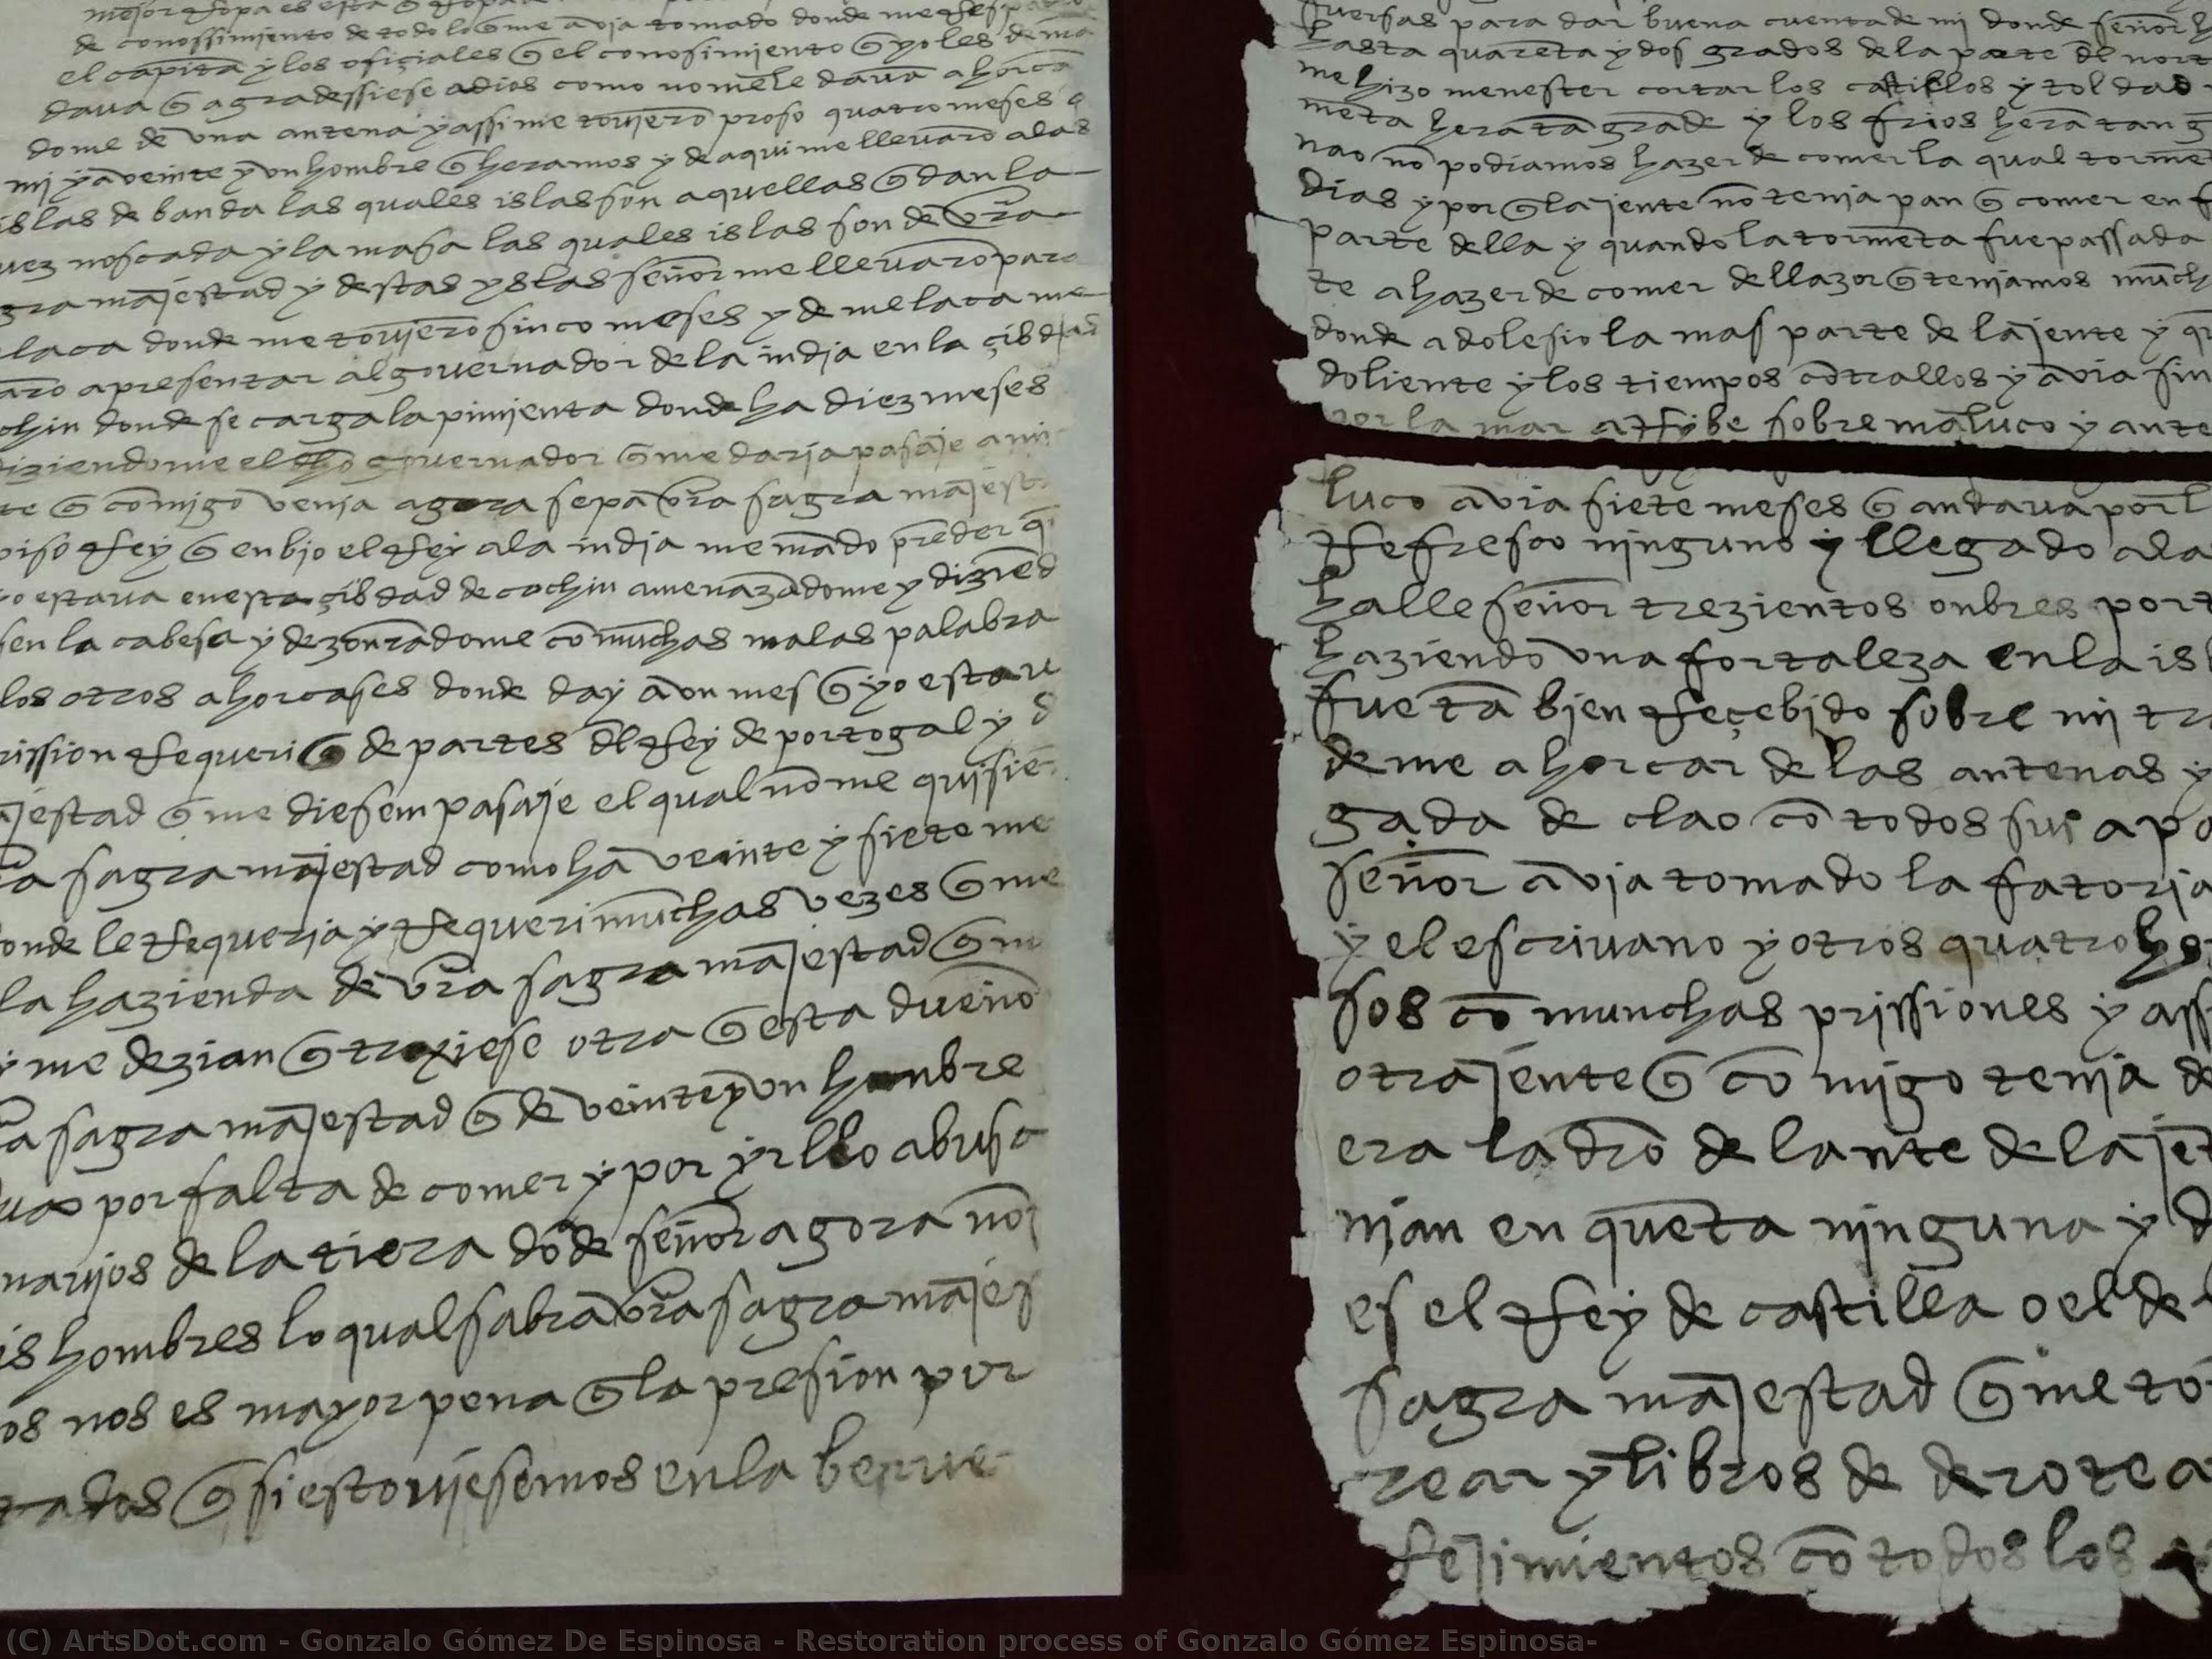 mejor rropa es esta q rropa
de conossimjento de todo lo q me avja tomado donde me rresp
el capitā y los ofiçiales q el conosimjento q yo les demā
dava q agradessiese a dios como no me le davā ahorcā
dome de vna antena y assi me tovjerō preso quatro meses a
mj y a veinte y vn hombre q heramos y de aqui me llevarō a las
islas de banda las quales islas son aquellas q dan la
uez noscada y la masa las quales islas son de vra
gra majestad y destas yslas señor me llevarō para
laca donde me tovjerō sinco meses y de melaca me
arō a presentar al governador de la indja en la çibdad
chin donde se carga la pimjenta donde ha diez meses
diziendome el dho governador q me darja pasaje a mi
te q cōmigo venja agora sepa vra sagra majest
viso rrey q enbjo el rrey a la indja me mādo prēder q
yo estava en esta çibdad de cochin amenazādome y diziēd
sen la cabesa y dezonrādome cō muchas malas palabra
los otros ahorcases donde day a vn mes q yo estav
rission rrequeri q de partes dl rrey de portogal y d
ajestad q me diesem pasaje el qual nō me quisie
ra sagra majestad como hā veinte y siete me
onde le rrequerja y rrequeri munchas vezes q me
la hazienda de vra sagra majestad q m
y me dezian q traxiese otra q esta dueño
ra sagra majestad q de veinte y vn honbre
uas por falta de comer y por yrllo a busca
narjos de la tiera dōde señor agora no
is hombres lo qual sabrā vra sagra majes
os nos es mayor pena q la presion por
tados q si estovjesemos en la berue
fuersas para dar buena cuenta de mj donde señor h
hasta quareta y dos grados de la parte dl nort
me hizo menester cortar los castillos y toldad
mēta hera tā grāde y los frios herā tan g
nao nō podiamos hazer de comer la qual tormēt
dias y por q la jente nō tenja pan q comer en f
parte della y quando la tormēta fue passada
te a hazer de comer dell azor q tenjamos munch
donde adolesio la mas parte de la jente y qu
doliente y los tiempos cōtrallos y avia sin
por la mar arrybe sobre maluco y ante
luco avia siete meses q andava por l
rrefresco ninguno y llegado a la
halle señor trezientos onbres port
haziendo vna fortaleza en la isl
fue tā bjen rreçebjdo sobre mj tr
de me ahorcar de las antenas y
gada de clao cō todos sus apa
señor avja tomado la fatorja
y el escrivano y otros quatro ho
sos cō munchas prissiones y ass
otra jente q cō migo tenja de
era ladrō delante de la jēt
njan en queta ninguna y d
es el rrey de castilla o el de
sagra majestad q me to
rear y libros de derotea
rrejimientos cō todos los
(C) ArtsDot.com - Gonzalo Gómez De Espinosa - Restoration process of Gonzalo Gómez Espinosa-